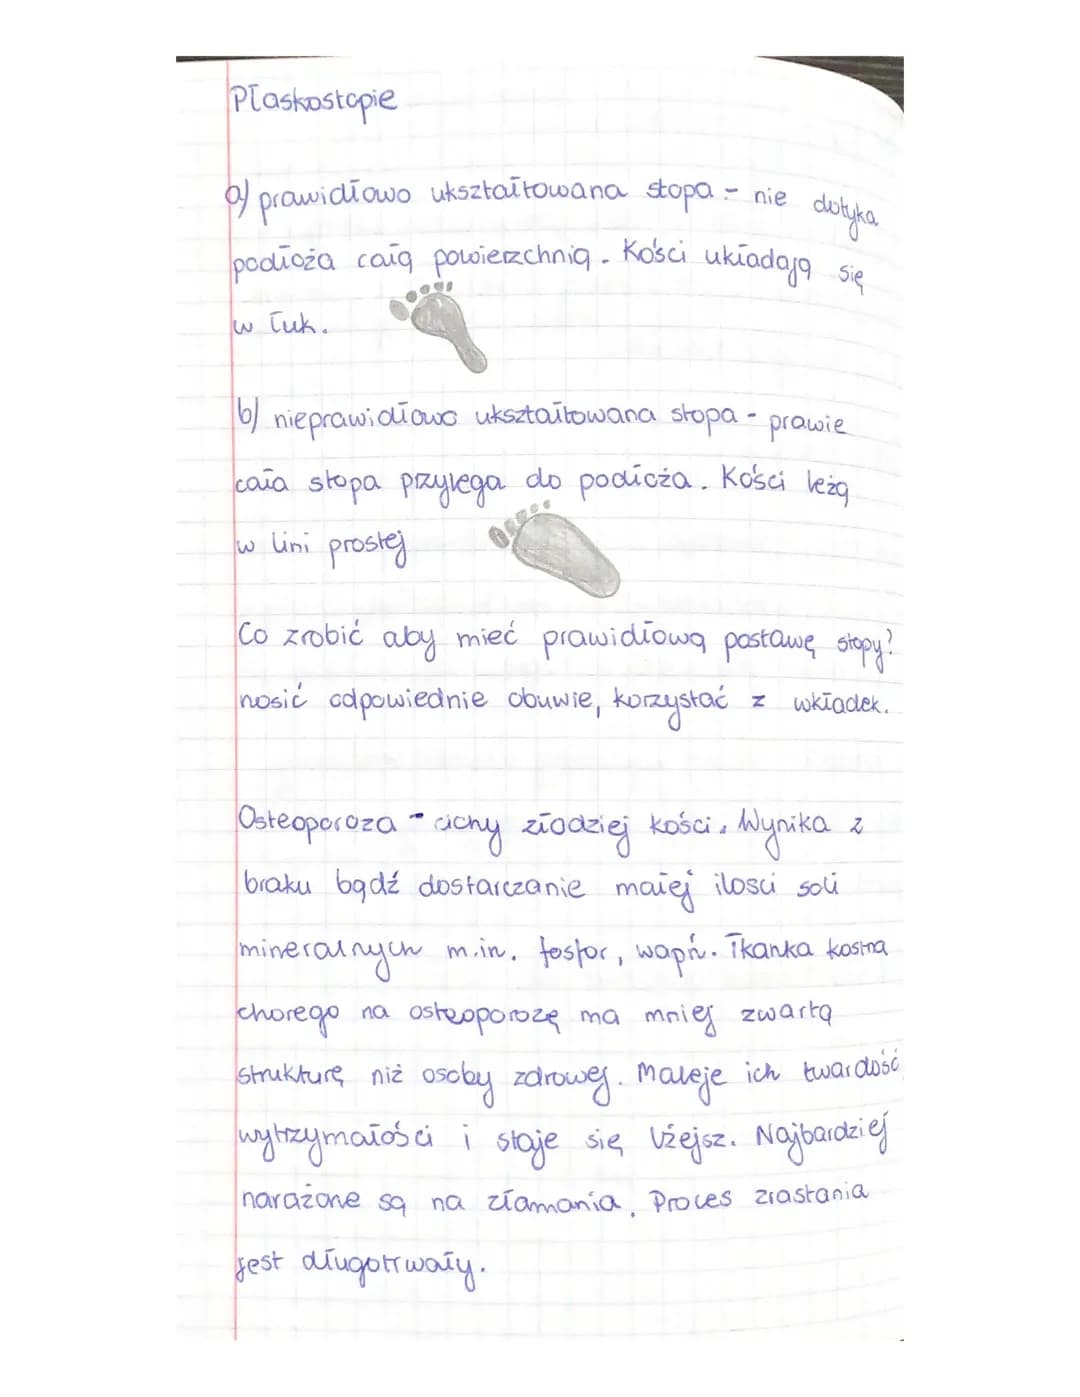 Płaskostopie
a) prawidłowo ukształtowana stopa - nie dotyka
podłoża całą powierzchnią. Kości układają się
w łuk.
b) nieprawidłowo ukształtowana stopa - prawie
cała stopa przylega do podłoża. Kości leżą
w lini prostej
Co zrobić aby mieć prawidłową postawę stopy?
nosić odpowiednie obuwie, korzystać z wkładek.
Osteoporoza - cichy złodziej kości. Wynika z
braku bądź dostarczanie małej ilosci soli
mineralnych m.in. fosfor, wapń. Tkanka kostna
chorego na osteoporozę ma mniej zwartą
strukturę niż osoby zdrowej. Maleje ich twardość
wytrzymałości i staje się lżejsz. Najbardziej
narażone są na złamania. Proces zrastania
jest długotrwały.